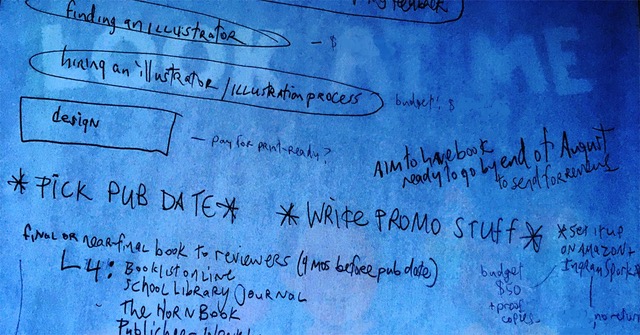 feedback
finding an ILLUSTRATOR
— $
LOOK AT ME
hiring an illustrator / ILLUSTRATION PROCESS
budget! $
design
— pay for print-ready?
Aim to have book
ready to go by end of August
to send for reviews
* PICK PUB DATE *
* WRITE PROMO STUFF *
* set it up
ON AMAZON +
Ingram Spark
no return
FINAL OR near-final book to reviewers (4 mos before pub date)
L4: Booklist online
School Library Journal
The Horn Book
budget
$50
+ proof
copies.